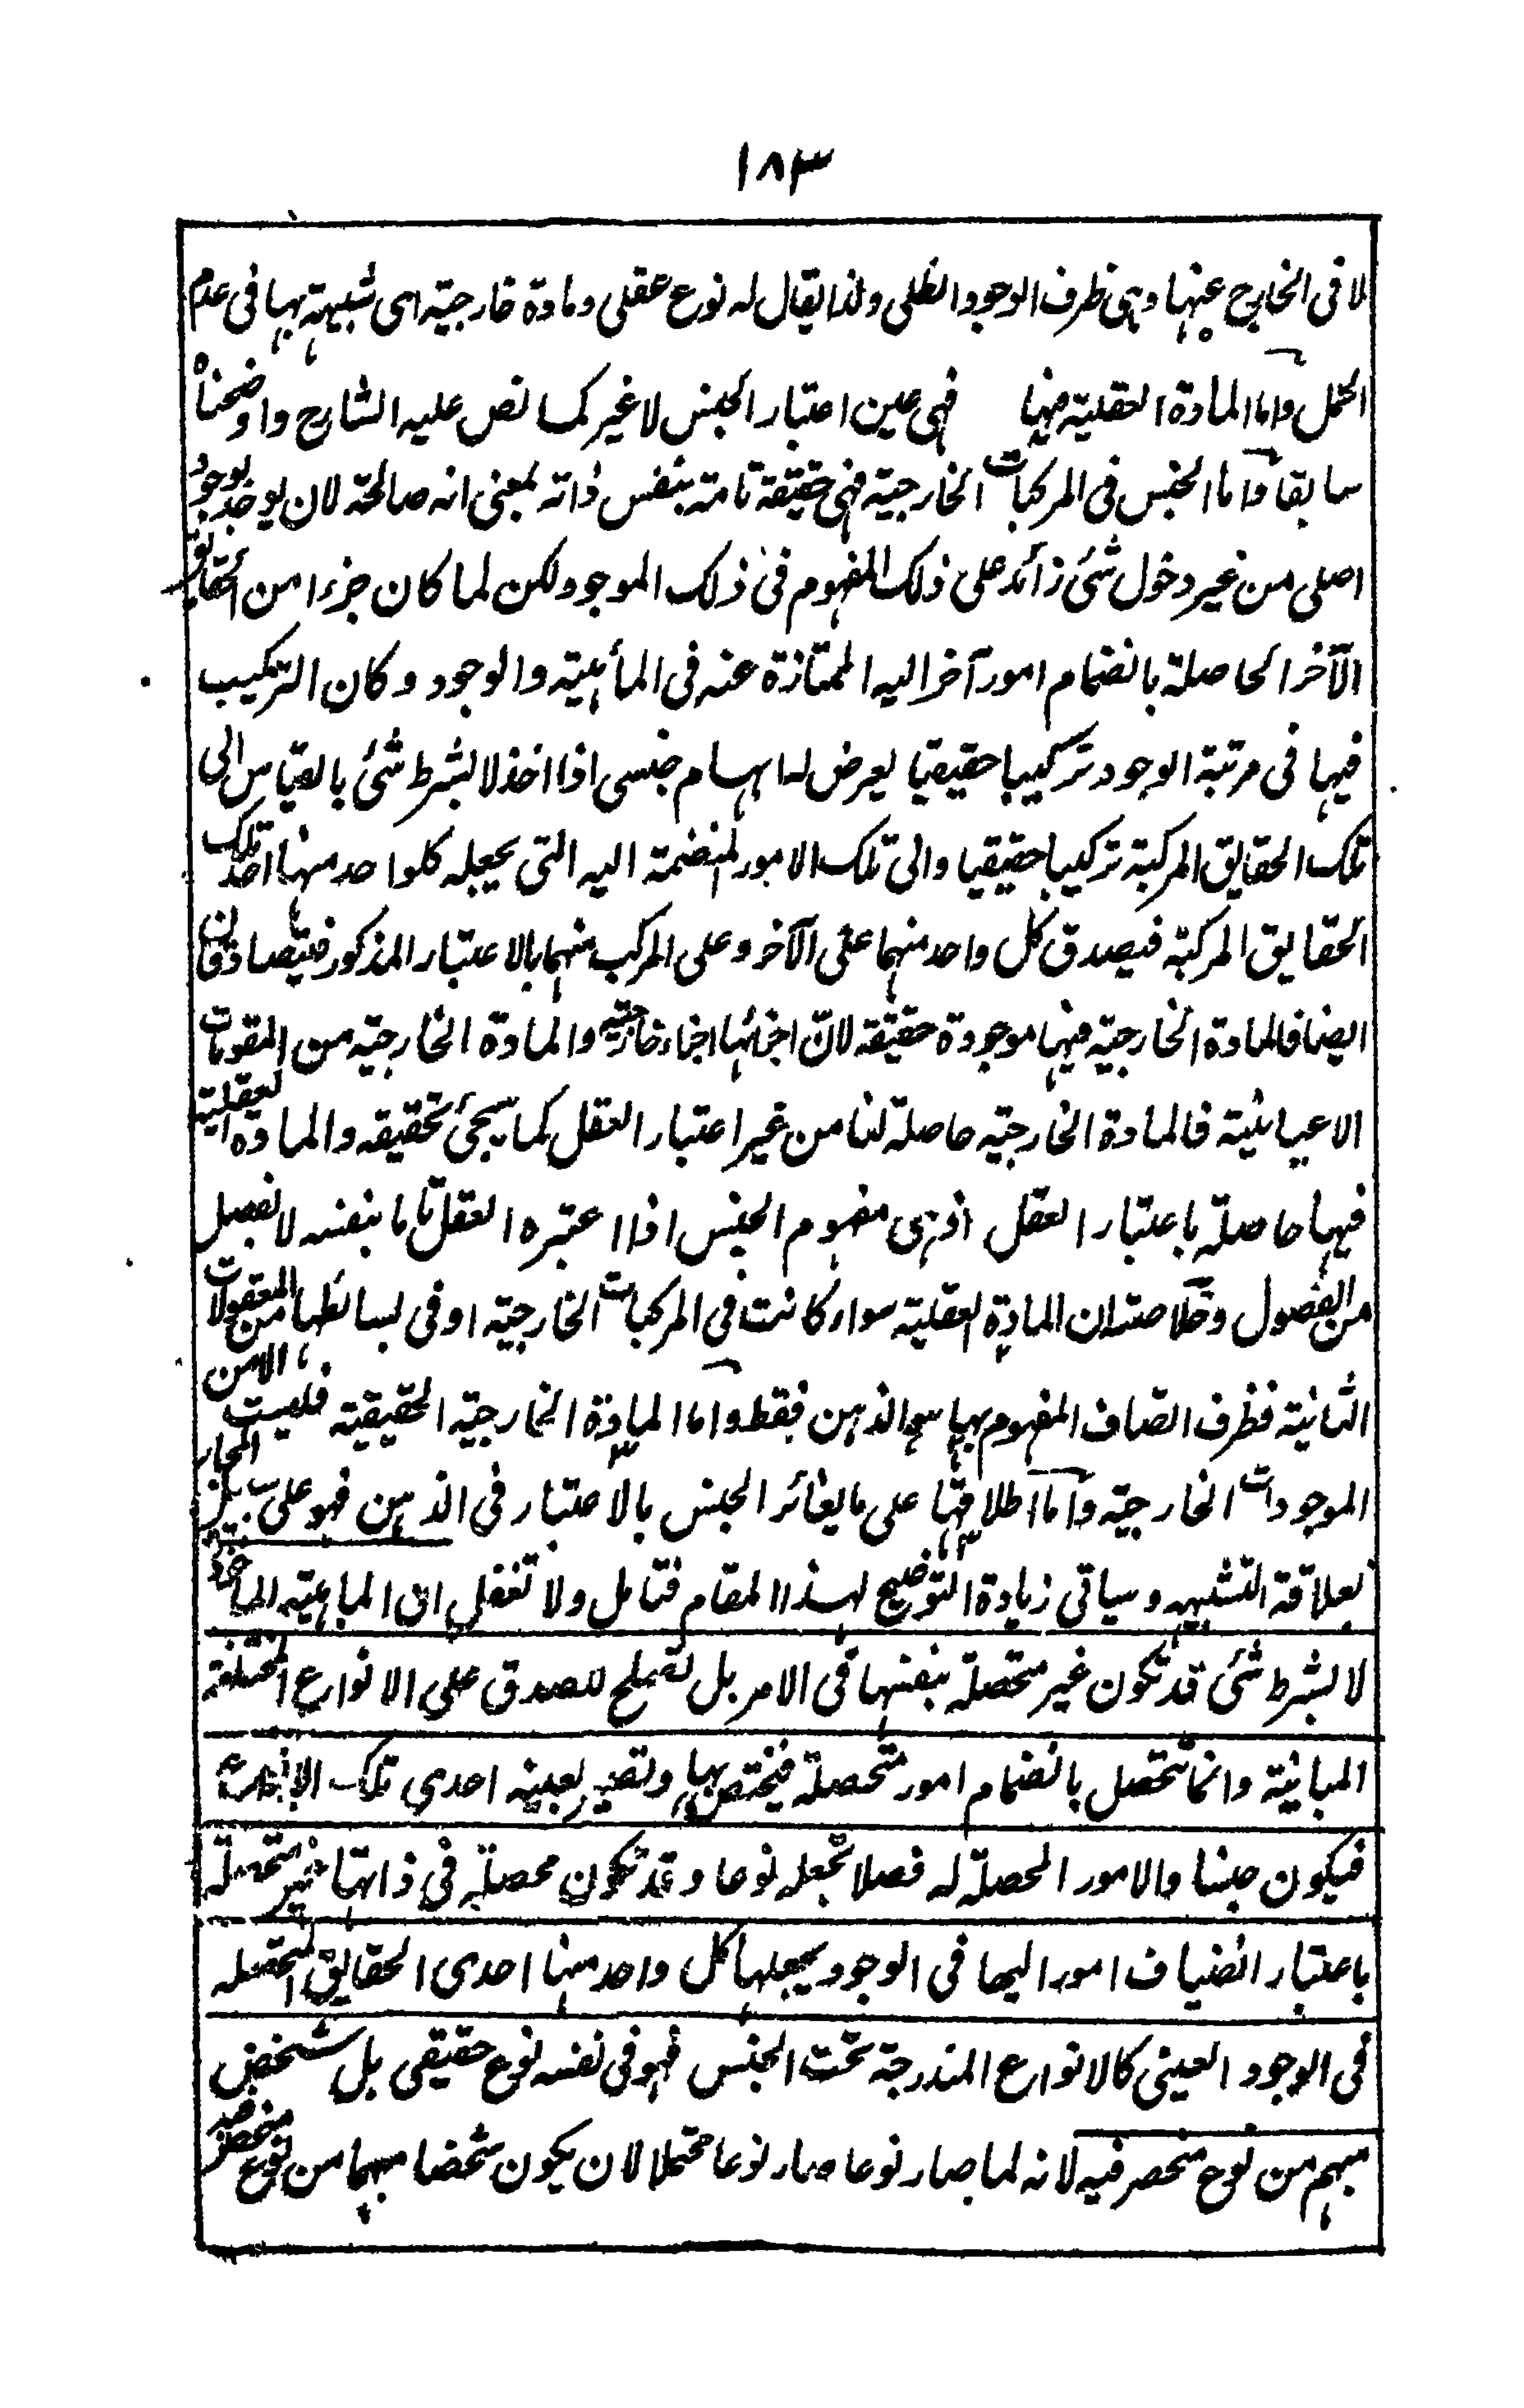 ١٨٣
لا فى الخارج عنها وهى ظرف الوجود الظلى ولذا يقال له نوع عقلى ومادة خارجية اى شبيهة بها فى عدم
الحمل واما المادة العقلية فيها فهى عين اعتبار الجنس لا غير كما نص عليه الشارح واوضحناه
سابقا واما الجنس فى المركبات الخارجية فهى حقيقة تامة بنفس ذاته بمعنى انه صالحة لان يوجد بوجود
اصلى من غير دخول شئ زائد على ذلك المفهوم فى ذلك الموجود لكن لما كان جزءا من الحقايق
الآخر الحاصلة بانضمام امور آخر اليه الممتازة عنه فى المأهية والوجود وكان التركيب
فيها فى مرتبة الوجود تركيبا حقيقيا يعرض له ابهام جنسى اذا اخذ لا بشرط شئ بالقياس الى
تلك الحقايق المركبة تركيبا حقيقيا والى تلك الامور المنضمة اليه التى يجعله كلواحد منها احد تلك
الحقايق المركبة فيصدق كل واحد منهما على الآخر وعلى المركب منهما بالاعتبار المذكور فيتصادقان
ايضا فالمادة الخارجية فيها موجودة حقيقة لانّ اجزائها اجزاء خارجية والمادة الخارجية من المقومات
الاعيانية فالمادة الخارجية حاصلة لنا من غير اعتبار العقل كما سيجئ تحقيقه والمادة العقلية
فيها حاصلة باعتبار العقل اذ هى مفهوم الجنس اذا اعتبره العقل تاما بنفسه لا بفصل
من الفصول وخلاصته ان المادة العقلية سواء كانت فى المركبات الخارجية او فى بسائطها من المعقولات
الثانية فظرف اتصاف المفهوم بها هو الذهن فقط واما المادة الخارجية الحقيقية فليست الا من
الموجودات الخارجية واما اطلاقها على ما يغائر الجنس بالاعتبار فى الذهن فهو على سبيل المجاز
بعلاقة التشبيه وسياتى زيادة التوضيح لهذا المقام فتامل ولا تغفل ان الماهية الماخوذة
لا بشرط شئ قد تكون غير متحصلة بنفسها فى الامر بل تصلح للصدق على الانواع المختلفة
المباينة وانما تتحصل بانضمام امور متحصلة فيختص بها وتصير بعينه احدى تلك الانواع
فيكون جنسا والامور المحصلة له فصلا تجعله نوعا وقد تكون محصلة فى ذاتها غير متحصلة
باعتبار انضياف امور اليها فى الوجود يجعلها كل واحد منها احدى الحقايق المتحصله
فى الوجود العينى كالانواع المندرجة تحت الجنس فهو فى نفسه نوع حقيقى بل شخص
مبهم من نوع منحصر فيه لانه لما صار نوعا صار نوعا محتملا لان يكون شخصا مبهما من نوع منحصر